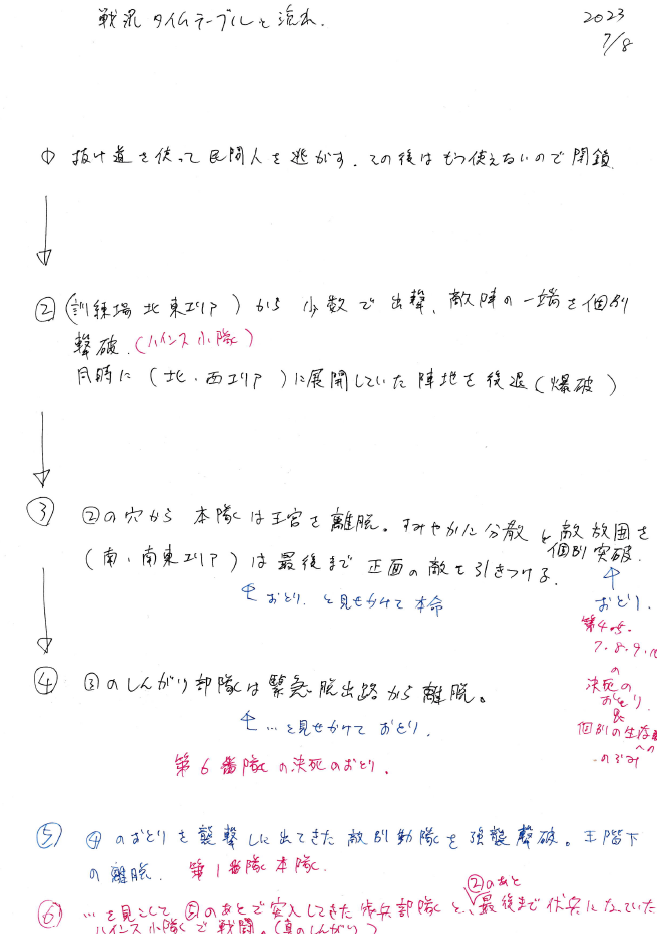 戦況 タイムテーブルと流れ.
2023
7/8
① 抜け道を使って民間人を逃がす. その後はもう使えないので閉鎖.
② (訓練場 北東エリア) から 少数で出撃、敵陣の一端を個別
撃破. (ハインス小隊)
同時に (北・西エリア) に展開していた陣地を後退 (爆破)
③ ②の穴から 本隊は王宮を離脱。すみやかに分散と敵放囲を
個別突破.
(南、南東エリア) は最後まで 正面の敵を引きつける.
おとり. と見せかけて本命
おとり.
第4.5.
7.8.9.10
の
決死の
おとり.
&
個別の生存
への
のぞみ
④ ③のしんがり部隊は緊急脱出路から離脱。
…と見せかけて おとり.
第6番隊の決死のおとり.
⑤ ④のおとりを襲撃しに出てきた敵別動隊を強襲撃破。王陛下
の離脱. 第1番隊本隊.
②のあと
⑥ …を見こして、⑤のあとで突入してきた歩兵部隊と、最後まで伏兵になっていた
ハインス小隊で戦闘。(真のしんがり)